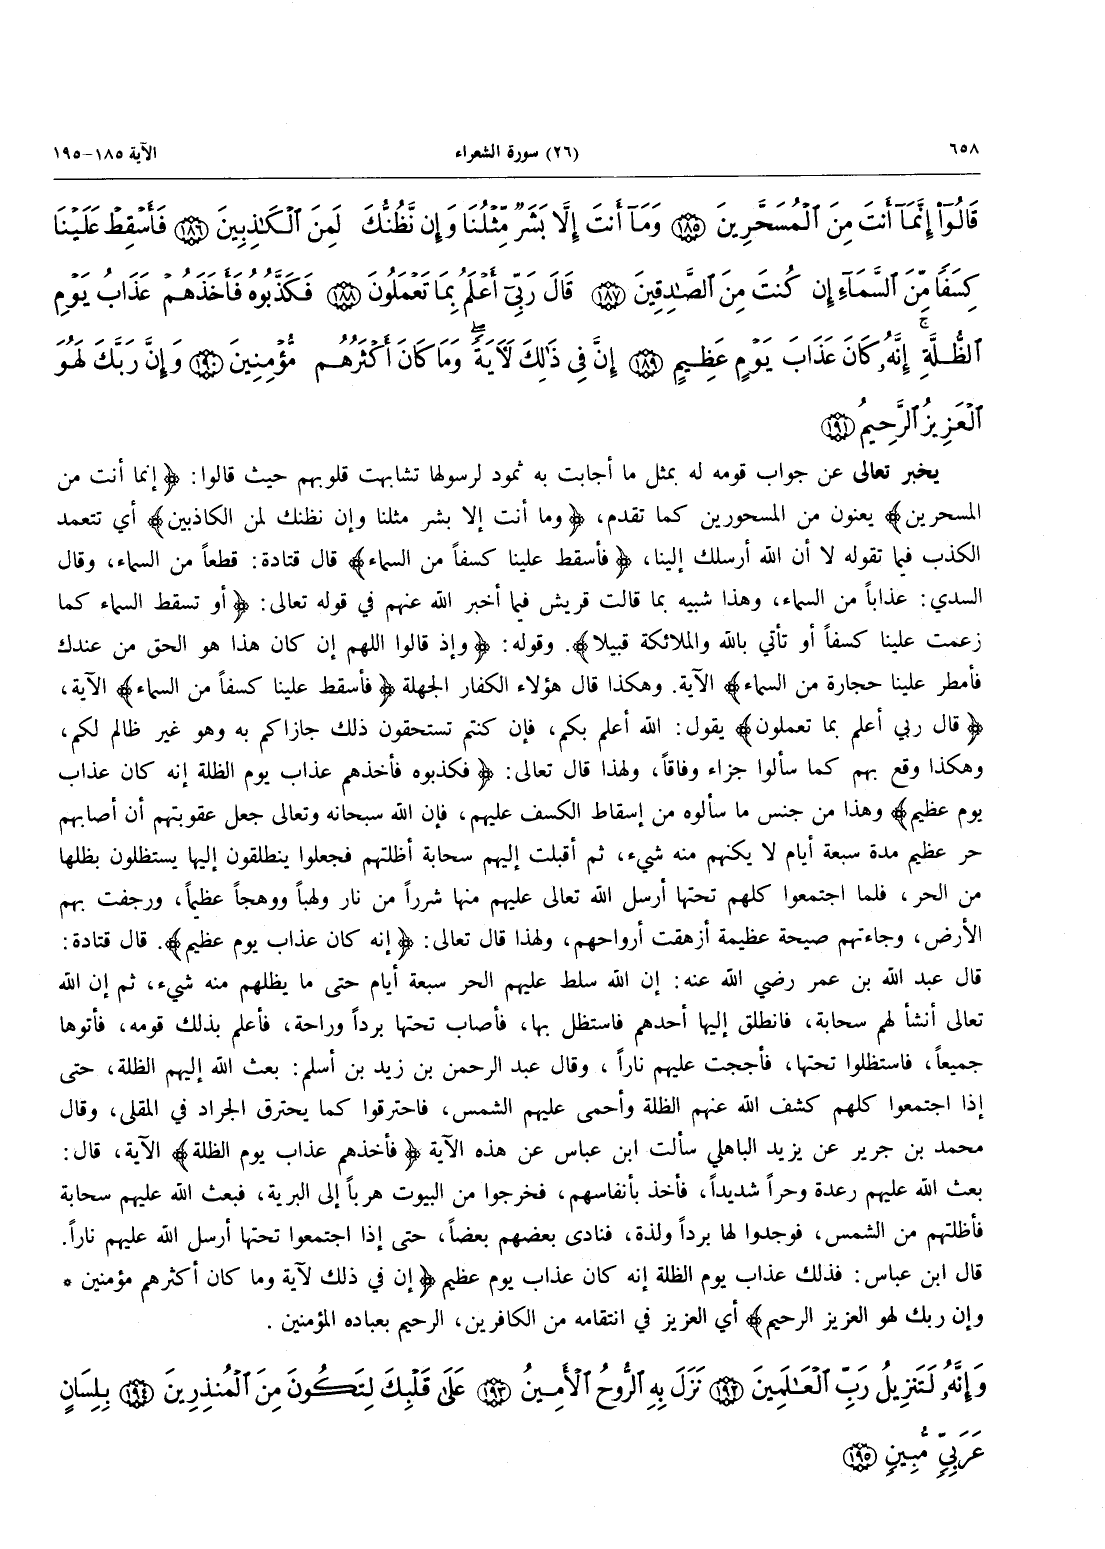 ٦٥٨ (٢٦) سورة الشعراء الآية ١٨٥-١٩٥
قَالُوٓا۟ إِنَّمَآ أَنتَ مِنَ ٱلْمُسَحَّرِينَ ١٨٥ وَمَآ أَنتَ إِلَّا بَشَرٌ مِّثْلُنَا وَإِن نَّظُنُّكَ لَمِنَ ٱلْكَـٰذِبِينَ ١٨٦ فَأَسْقِطْ عَلَيْنَا
كِسَفًا مِّنَ ٱلسَّمَآءِ إِن كُنتَ مِنَ ٱلصَّـٰدِقِينَ ١٨٧ قَالَ رَبِّىٓ أَعْلَمُ بِمَا تَعْمَلُونَ ١٨٨ فَكَذَّبُوهُ فَأَخَذَهُمْ عَذَابُ يَوْمِ
ٱلظُّلَّةِ ۚ إِنَّهُۥ كَانَ عَذَابَ يَوْمٍ عَظِيمٍ ١٨٩ إِنَّ فِى ذَٰلِكَ لَـَٔايَةً ۖ وَمَا كَانَ أَكْثَرُهُم مُّؤْمِنِينَ ١٩٠ وَإِنَّ رَبَّكَ لَهُوَ
ٱلْعَزِيزُ ٱلرَّحِيمُ ١٩١
يخبر تعالى عن جواب قومه له بمثل ما أجابت به ثمود لرسولها تشابهت قلوبهم حيث قالوا: ﴿إنما أنت من
المسحرين﴾ يعنون من المسحورين كما تقدم، ﴿وما أنت إلا بشر مثلنا وإن نظنك لمن الكاذبين﴾ أي تتعمد
الكذب فيما تقوله لا أن الله أرسلك إلينا، ﴿فأسقط علينا كسفاً من السماء﴾ قال قتادة: قطعاً من السماء، وقال
السدي: عذاباً من السماء، وهذا شبيه بما قالت قريش فيما أخبر الله عنهم في قوله تعالى: ﴿أو تسقط السماء كما
زعمت علينا كسفاً أو تأتي بالله والملائكة قبيلا﴾. وقوله: ﴿وإذ قالوا اللهم إن كان هذا هو الحق من عندك
فأمطر علينا حجارة من السماء﴾ الآية. وهكذا قال هؤلاء الكفار الجهلة ﴿فأسقط علينا كسفاً من السماء﴾ الآية،
﴿قال ربي أعلم بما تعملون﴾ يقول: الله أعلم بكم، فإن كنتم تستحقون ذلك جازاكم به وهو غير ظالم لكم،
وهكذا وقع بهم كما سألوا جزاء وفاقاً، ولهذا قال تعالى: ﴿فكذبوه فأخذهم عذاب يوم الظلة إنه كان عذاب
يوم عظيم﴾ وهذا من جنس ما سألوه من إسقاط الكسف عليهم، فإن الله سبحانه وتعالى جعل عقوبتهم أن أصابهم
حر عظيم مدة سبعة أيام لا يكنهم منه شيء، ثم أقبلت إليهم سحابة أظلتهم فجعلوا ينطلقون إليها يستظلون بظلها
من الحر، فلما اجتمعوا كلهم تحتها أرسل الله تعالى عليهم منها شرراً من نار ولهباً ووهجاً عظيماً، ورجفت بهم
الأرض، وجاءتهم صيحة عظيمة أزهقت أرواحهم، ولهذا قال تعالى: ﴿إنه كان عذاب يوم عظيم﴾. قال قتادة:
قال عبد الله بن عمر رضي الله عنه: إن الله سلط عليهم الحر سبعة أيام حتى ما يظلهم منه شيء، ثم إن الله
تعالى أنشأ لهم سحابة، فانطلق إليها أحدهم فاستظل بها، فأصاب تحتها برداً وراحة، فأعلم بذلك قومه، فأتوها
جميعاً، فاستظلوا تحتها، فأججت عليهم ناراً، وقال عبد الرحمن بن زيد بن أسلم: بعث الله إليهم الظلة، حتى
إذا اجتمعوا كلهم كشف الله عنهم الظلة وأحمى عليهم الشمس، فاحترقوا كما يحترق الجراد في المقلى، وقال
محمد بن جرير عن يزيد الباهلي سألت ابن عباس عن هذه الآية ﴿فأخذهم عذاب يوم الظلة﴾ الآية، قال:
بعث الله عليهم رعدة وحراً شديداً، فأخذ بأنفاسهم، فخرجوا من البيوت هرباً إلى البرية، فبعث الله عليهم سحابة
فأظلتهم من الشمس، فوجدوا لها برداً ولذة، فنادى بعضهم بعضاً، حتى إذا اجتمعوا تحتها أرسل الله عليهم ناراً.
قال ابن عباس: فذلك عذاب يوم الظلة إنه كان عذاب يوم عظيم ﴿إن في ذلك لآية وما كان أكثرهم مؤمنين *
وإن ربك لهو العزيز الرحيم﴾ أي العزيز في انتقامه من الكافرين، الرحيم بعباده المؤمنين.
وَإِنَّهُۥ لَتَنزِيلُ رَبِّ ٱلْعَـٰلَمِينَ ١٩٢ نَزَلَ بِهِ ٱلرُّوحُ ٱلْأَمِينُ ١٩٣ عَلَىٰ قَلْبِكَ لِتَكُونَ مِنَ ٱلْمُنذِرِينَ ١٩٤ بِلِسَانٍ
عَرَبِىٍّ مُّبِينٍ ١٩٥